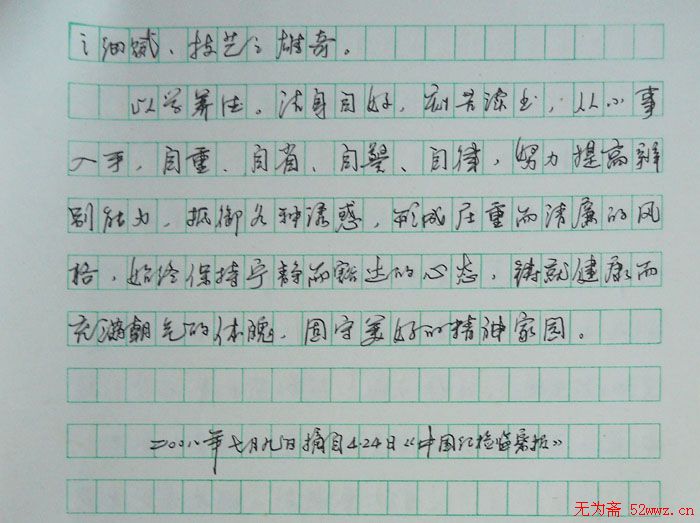 之细腻、技艺之雄奇。
以学养性。洁身自好,刻苦读书,从小事
入手,自重、自省、自警、自律,努力提高辨
别能力,抵御各种诱惑,形成庄重而清廉的风
格,始终保持宁静而豁达的心态,铸就健康而
充满朝气的体魄,固守美好的精神家园。
二00八年七月九日摘自4.24日《中国纪检监察报》
无为斋 52wwz.cn